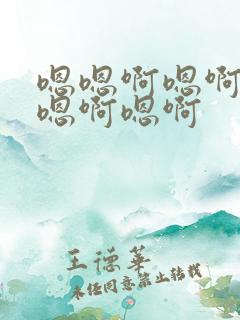 嗯嗯啊嗯啊
嗯啊嗯啊
王德华
未经同意禁止转载